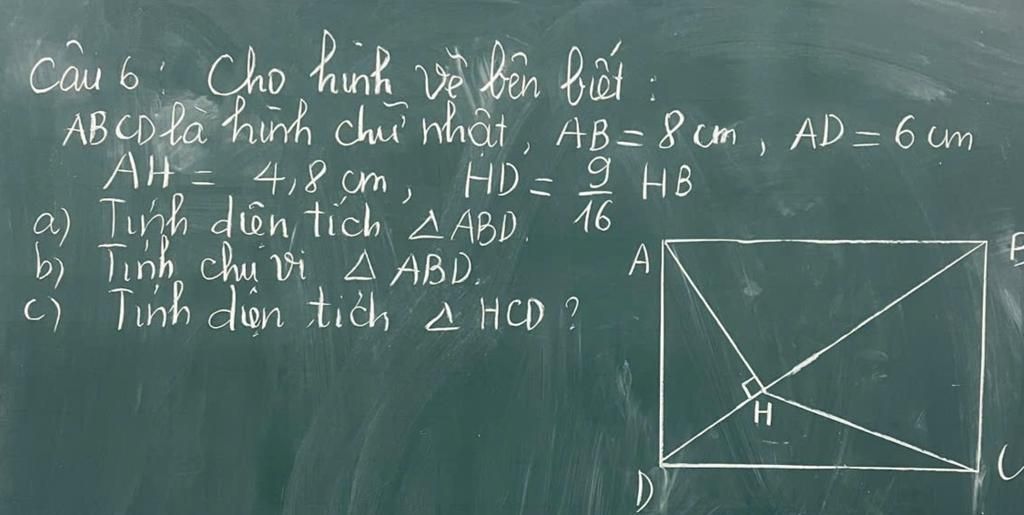 Câu 6: Cho hình vẽ bên biết:
ABCD là hình chữ nhật, AB = 8 cm, AD = 6 cm
AH = 4,8 cm, HD = 9/16 HB
a) Tính diện tích △ ABD.
b) Tính chu vi △ ABD.
c) Tính diện tích △ HCD?
A B
H
D C